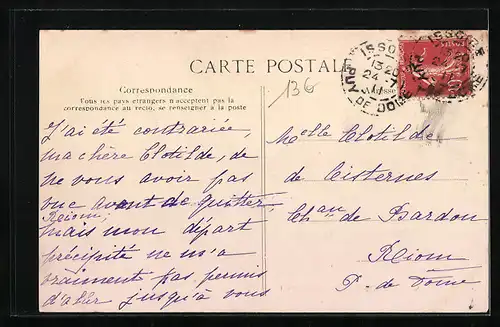 CARTE POSTALE
Correspondance
Tous les pays étrangers n'acceptent pas la
correspondance au recto, se renseigner à la poste
136
ISSOIRE
13 20
24
PUY-DE-DOME
J'ai été contrariée,
ma chère Clotilde, de
ne vous avoir pas
vue avant de quitter
Riom,
mais mon départ
précipité ne m'a
vraiment pas permis
d'aller jusqu'à vous
Melle Clotilde
de Cisternes
Chau de Bardon
Riom
P. de Dôme